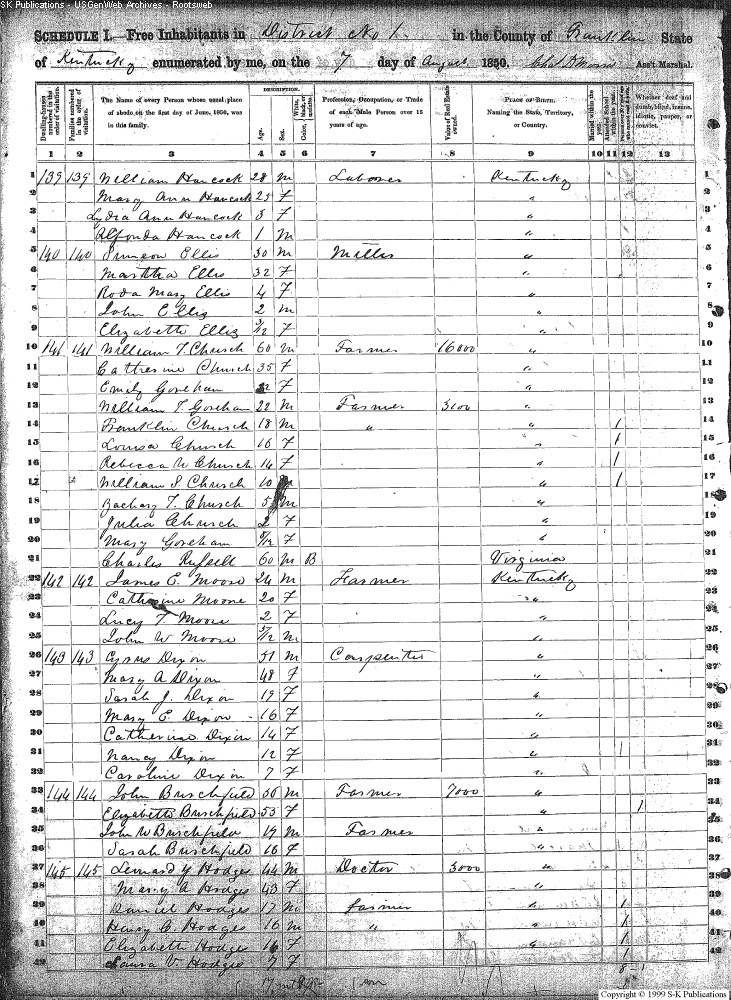 SK Publications - USGenWeb Archives - Rootsweb
SCHEDULE I.—Free Inhabitants in District No 1. in the County of Franklin State
of Kentucky enumerated by me, on the 7 day of August 1850. Ass't Marshal.
Dwelling-houses numbered in the order of visitation. Families numbered in the order of visitation. The Name of every Person whose usual place of abode on the first day of June, 1850, was in this family. DESCRIPTION. Age. Sex. Color, White, black, or mulatto. Profession, Occupation, or Trade of each Male Person over 15 years of age. Value of Real Estate owned. PLACE OF BIRTH. Naming the State, Territory, or Country. Married within the year. Attended School within the year. Whether deaf and dumb, blind, insane, idiotic, pauper, or convict.
1 2 3 4 5 6 7 8 9 10 11 12 13
1 139 139 William Hancock 28 M Laborer Kentucky 1
2 Mary Ann Hancock 25 F " 2
3 Lydia Ann Hancock 3 F " 3
4 Alfonda Hancock 1 M " 4
5 140 140 Simeon Ellis 30 M Miller " 5
6 Martha Ellis 32 F " 6
7 Roda Mary Ellis 4 F " 7
8 John Ellis 2 M " 8
9 Elizabeth Ellis 3/12 F " 9
10 141 141 William T. Church 60 M Farmer 16000 " 10
11 Catherine Church 35 F " 11
12 Emily Goreham 22 F " 12
13 William T. Goreham 22 M Farmer 3100 " 13
14 Franklin Church 18 M " " 1 14
15 Louisa Church 16 F " 1 15
16 Rebecca W Church 14 F " 1 16
17 William S. Church 10 M " 1 17
18 Zachary T. Church 5 M " 18
19 Julia Church 2 F " 19
20 Mary Goreham F " 20
21 Charles Russell 60 M B Virginia 21
22 142 142 James E. Moore 24 M Farmer Kentucky 22
23 Catherine Moore 20 F " 23
24 Lucy T. Moore 2 F " 24
25 John W Moore M " 25
26 143 143 Cyrus Dixon 51 M Carpenter " 26
27 Mary A Dixon 48 F " 27
28 Sarah J. Dixon 19 F " 28
29 Mary E. Dixon 16 F " 29
30 Catherine Dixon 14 F " 30
31 Nancy Dixon 12 F " 1 31
32 Caroline Dixon 7 F " 32
33 144 144 John Burchfield 56 M Farmer 7000 " 33
34 Elizabeth Burchfield 55 F " 1 34
35 John W Burchfield 19 M Farmer " 35
36 Sarah Burchfield 16 F " 36
37 145 145 Lenard Y Hodges 44 M Doctor 3000 " 37
38 Mary A Hodges 43 F " 38
39 Daniel Hodges 17 M Farmer " 1
40 Henry C. Hodges 16 M " " 1
41 Elizabeth Hodges 16 F " 1
42 Laura V. Hodges 7 F 1 42
Copyright © 1999 S-K Publications